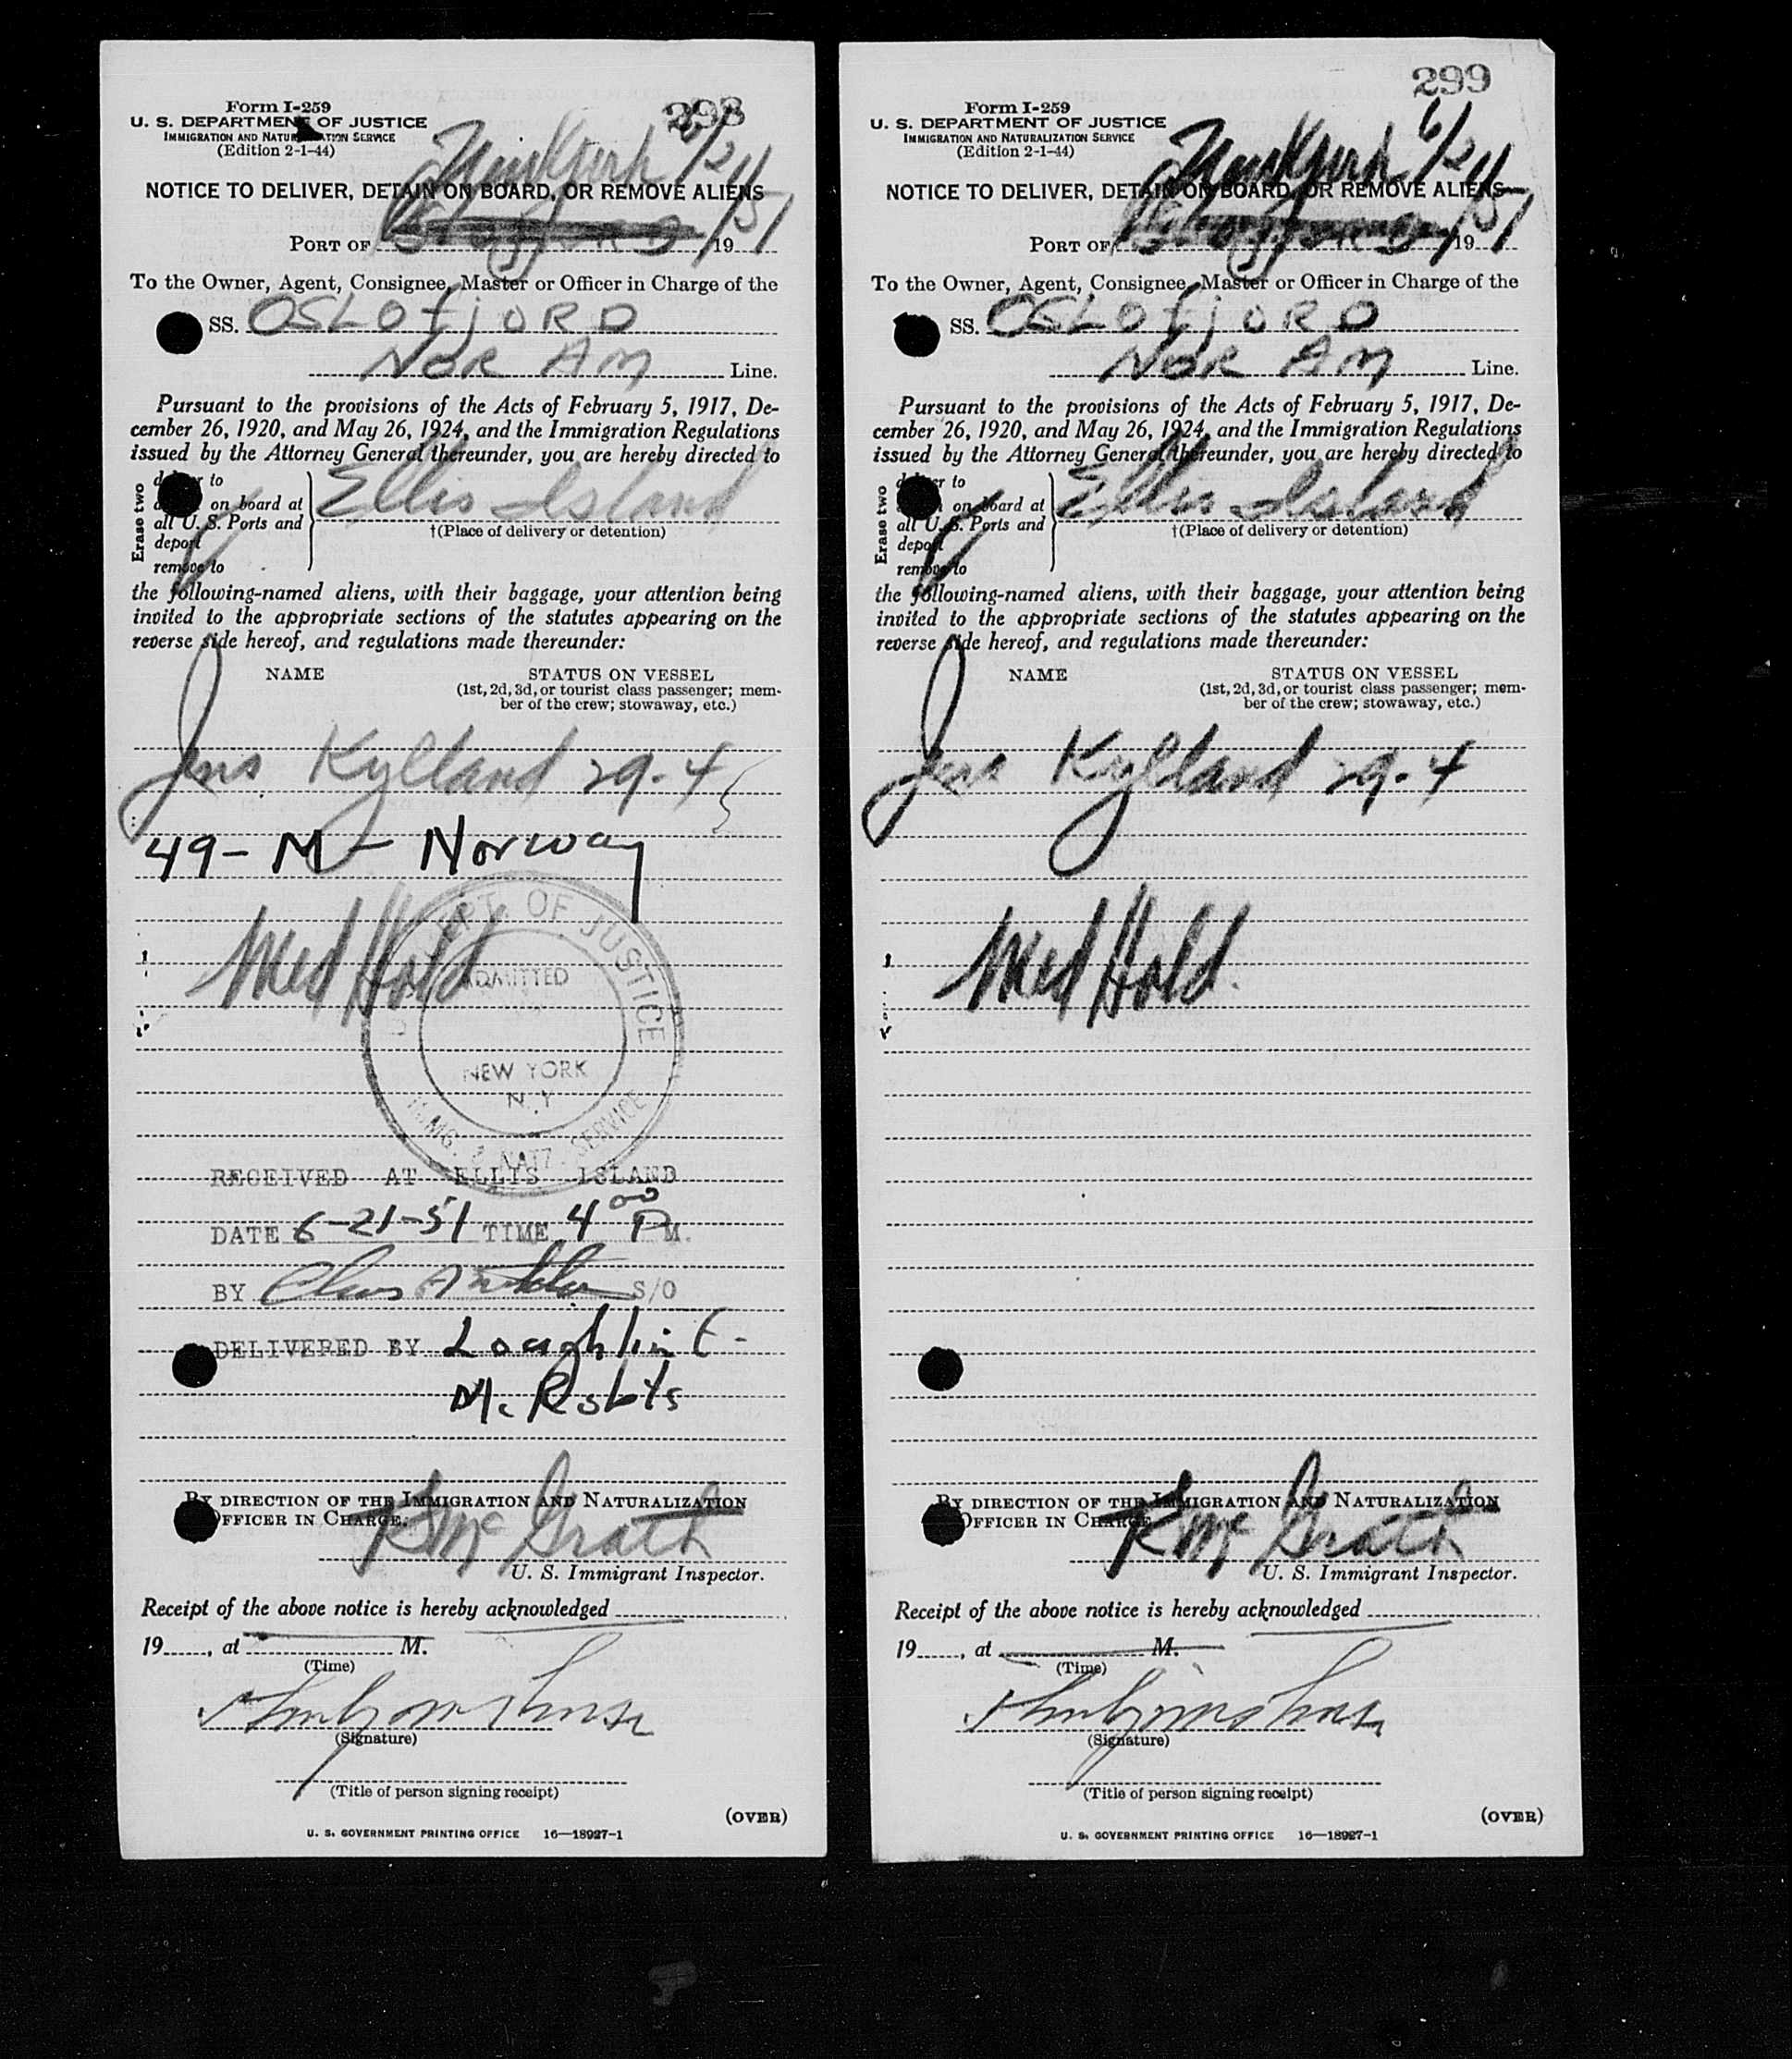 298
Form I-259
U. S. DEPARTMENT OF JUSTICE
IMMIGRATION AND NATURALIZATION SERVICE
(Edition 2-1-44)
New York 6/21/51
NOTICE TO DELIVER, DETAIN ON BOARD, OR REMOVE ALIENS
PORT OF 19
To the Owner, Agent, Consignee, Master or Officer in Charge of the
SS. OSLOfjORD
NOR AM Line.
Pursuant to the provisions of the Acts of February 5, 1917, De-
cember 26, 1920, and May 26, 1924, and the Immigration Regulations
issued by the Attorney General thereunder, you are hereby directed to
Erase two
to
on board at
all U. S. Ports and
deport
remove to
Ellis Island
†(Place of delivery or detention)
the following-named aliens, with their baggage, your attention being
invited to the appropriate sections of the statutes appearing on the
reverse side hereof, and regulations made thereunder:
NAME STATUS ON VESSEL
(1st, 2d, 3d, or tourist class passenger; mem-
ber of the crew; stowaway, etc.)
Jens Kylland 29-4
49 - M - Norway
Med Hold
DEPT. OF JUSTICE
ADMITTED
NEW YORK
N.Y
IMMG. & NATZ. SERVICE
RECEIVED AT ELLIS ISLAND
DATE 6-21-51 TIME 4 00 PM.
BY S/O
DELIVERED BY Loughlin
BY DIRECTION OF THE IMMIGRATION AND NATURALIZATION
OFFICER IN CHARGE.
McGrath
U. S. Immigrant Inspector.
Receipt of the above notice is hereby acknowledged
19, at M.
(Time)
(Signature)
(Title of person signing receipt)
(OVER)
U. S. GOVERNMENT PRINTING OFFICE 16—18927-1
299
Form I-259
U. S. DEPARTMENT OF JUSTICE
IMMIGRATION AND NATURALIZATION SERVICE
(Edition 2-1-44)
New York 6/21/51
NOTICE TO DELIVER, DETAIN ON BOARD, OR REMOVE ALIENS
PORT OF 19
To the Owner, Agent, Consignee, Master or Officer in Charge of the
SS. OSLOfjORD
NOR AM Line.
Pursuant to the provisions of the Acts of February 5, 1917, De-
cember 26, 1920, and May 26, 1924, and the Immigration Regulations
issued by the Attorney General thereunder, you are hereby directed to
Erase two
to
on board at
all U. S. Ports and
deport
remove to
Ellis Island
†(Place of delivery or detention)
the following-named aliens, with their baggage, your attention being
invited to the appropriate sections of the statutes appearing on the
reverse side hereof, and regulations made thereunder:
NAME STATUS ON VESSEL
(1st, 2d, 3d, or tourist class passenger; mem-
ber of the crew; stowaway, etc.)
Jens Kylland 29-4
Med Hold
BY DIRECTION OF THE IMMIGRATION AND NATURALIZATION
OFFICER IN CHARGE.
McGrath
U. S. Immigrant Inspector.
Receipt of the above notice is hereby acknowledged
19, at M.
(Time)
(Signature)
(Title of person signing receipt)
(OVER)
U. S. GOVERNMENT PRINTING OFFICE 16—18927-1